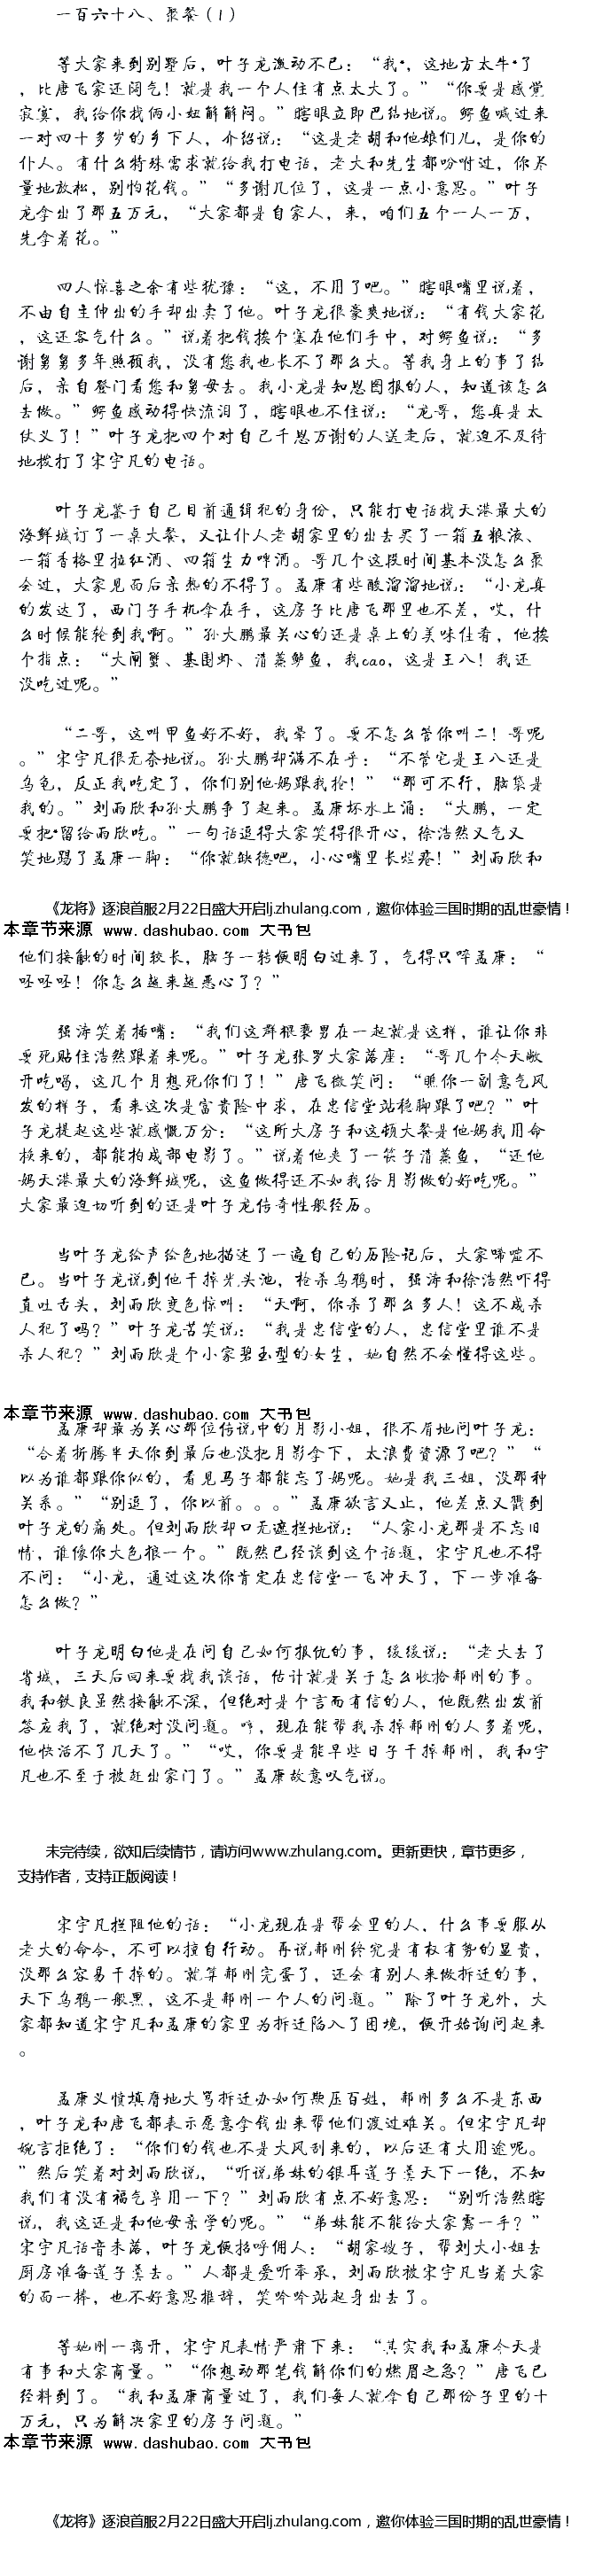 一百六十八、聚餐（1）
等大家来到别墅后，叶子龙激动不已：“我*，这地方太牛*了
，比唐飞家还阔气！就是我一个人住有点太大了。”“你要是感觉
寂寞，我给你找俩小妞解解闷。”瞎眼立即巴结地说。鳄鱼喊过来
一对四十多岁的乡下人，介绍说：“这是老胡和他娘们儿，是你的
仆人。有什么特殊需求就给我打电话，老大和先生都吩咐过，你尽
量地放松，别怕花钱。”“多谢几位了，这是一点小意思。”叶子
龙拿出了那五万元，“大家都是自家人，来，咱们五个一人一万，
先拿着花。”
四人惊喜之余有些犹豫：“这，不用了吧。”瞎眼嘴里说着，
不由自主伸出的手却出卖了他。叶子龙很豪爽地说：“有钱大家花
，这还客气什么。”说着把钱挨个塞在他们手中，对鳄鱼说：“多
谢舅舅多年照顾我，没有您我也长不了那么大。等我身上的事了结
后，亲自登门看您和舅母去。我小龙是知恩图报的人，知道该怎么
去做。”鳄鱼感动得快流泪了，瞎眼也不住说：“龙哥，您真是太
仗义了！”叶子龙把四个对自己千恩万谢的人送走后，就迫不及待
地拨打了宋宇凡的电话。
叶子龙鉴于自己目前通缉犯的身份，只能打电话找天港最大的
海鲜城订了一桌大餐，又让仆人老胡家里的出去买了一箱五粮液、
一箱香格里拉红酒、四箱生力啤酒。哥几个这段时间基本没怎么聚
会过，大家见面后亲热的不得了。孟康有些酸溜溜地说：“小龙真
的发达了，西门子手机拿在手，这房子比唐飞那里也不差，哎，什
么时候能轮到我啊。”孙大鹏最关心的还是桌上的美味佳肴，他挨
个指点：“大闸蟹、基围虾、清蒸鲈鱼，我cao，这是王八！我还
没吃过呢。”
“二哥，这叫甲鱼好不好，我晕了。要不怎么管你叫二！哥呢
。”宋宇凡很无奈地说。孙大鹏却满不在乎：“不管它是王八还是
乌龟，反正我吃定了，你们别他妈跟我抢！”“那可不行，脑袋是
我的。”刘雨欣和孙大鹏争了起来。孟康坏水上涌：“大鹏，一定
要把*留给雨欣吃。”一句话逗得大家笑得很开心，徐浩然又气又
笑地踢了孟康一脚：“你就缺德吧，小心嘴里长烂疮！”刘雨欣和
《龙将》逐浪首服2月22日盛大开启lj.zhulang.com，邀你体验三国时期的乱世豪情！
本章节来源 www.dashubao.com 大书包
他们接触的时间较长，脑子一转便明白过来了，气得只啐孟康：“
呸呸呸！你怎么越来越恶心了？”
强涛笑着插嘴：“我们这群猥亵男在一起就是这样，谁让你非
要死贴住浩然跟着来呢。”叶子龙张罗大家落座：“哥几个今天敞
开吃喝，这几个月想死你们了！”唐飞微笑问：“瞧你一副意气风
发的样子，看来这次是富贵险中求，在忠信堂站稳脚跟了吧？”叶
子龙提起这些就感慨万分：“这所大房子和这顿大餐是他妈我用命
换来的，都能构成部电影了。”说着他夹了一筷子清蒸鱼，“还他
妈天港最大的海鲜城呢，这鱼做得还不如我给月影做的好吃呢。”
大家最迫切听到的还是叶子龙传奇性般经历。
当叶子龙绘声绘色地描述了一遍自己的历险记后，大家唏嘘不
已。当叶子龙说到他干掉光头池，枪杀乌鸦时，强涛和徐浩然吓得
直吐舌头，刘雨欣变色惊叫：“天啊，你杀了那么多人！这不成杀
人犯了吗？”叶子龙苦笑说：“我是忠信堂的人，忠信堂里谁不是
杀人犯？”刘雨欣是个小家碧玉型的女生，她自然不会懂得这些。
本章节来源 www.dashubao.com 大书包
孟康却最为关心那位传说中的月影小姐，很不屑地问叶子龙：
“合着折腾半天你到最后也没把月影拿下，太浪费资源了吧？”“
以为谁都跟你似的，看见马子都能忘了妈呢。她是我三姐，没那种
关系。”“别逗了，你以前。。。”孟康欲言又止，他差点又戳到
叶子龙的痛处。但刘雨欣却口无遮拦地说：“人家小龙那是不忘旧
情，谁像你大色狼一个。”既然已经谈到这个话题，宋宇凡也不得
不问：“小龙，通过这次你肯定在忠信堂一飞冲天了，下一步准备
怎么做？”
叶子龙明白他是在问自己如何报仇的事，缓缓说：“老大去了
省城，三天后回来要找我谈话，估计就是关于怎么收拾郝刚的事。
我和铁良虽然接触不深，但绝对是个言而有信的人，他既然出发前
答应我了，就绝对没问题。哼，现在能帮我杀掉郝刚的人多着呢，
他快活不了几天了。”“哎，你要是能早些日子干掉郝刚，我和宇
凡也不至于被赶出家门了。”孟康故意叹气说。
未完待续，欲知后续情节，请访问www.zhulang.com。更新更快，章节更多，
支持作者，支持正版阅读！
宋宇凡拦阻他的话：“小龙现在是帮会里的人，什么事要服从
老大的命令，不可以擅自行动。再说郝刚终究是有权有势的显贵，
没那么容易干掉的。就算郝刚完蛋了，还会有别人来做拆迁的事，
天下乌鸦一般黑，这不是郝刚一个人的问题。”除了叶子龙外，大
家都知道宋宇凡和孟康的家里为拆迁陷入了困境，便开始询问起来
。
孟康义愤填膺地大骂拆迁办如何欺压百姓，郝刚多么不是东西
，叶子龙和唐飞都表示愿意拿钱出来帮他们渡过难关。但宋宇凡却
婉言拒绝了：“你们的钱也不是大风刮来的，以后还有大用途呢。
”然后笑着对刘雨欣说，“听说弟妹的银耳莲子羹天下一绝，不知
我们有没有福气享用一下？”刘雨欣有点不好意思：“别听浩然瞎
说，我这还是和他母亲学的呢。”“弟妹能不能给大家露一手？”
宋宇凡话音未落，叶子龙便招呼佣人：“胡家嫂子，帮刘大小姐去
厨房准备莲子羹去。”人都是爱听奉承，刘雨欣被宋宇凡当着大家
的面一捧，也不好意思推辞，笑吟吟站起身出去了。
等她刚一离开，宋宇凡表情严肃下来：“其实我和孟康今天是
有事和大家商量。”“你想动那笔钱解你们的燃眉之急？”唐飞已
经料到了。“我和孟康商量过了，我们每人就拿自己那份子里的十
万元，只为解决家里的房子问题。”
本章节来源 www.dashubao.com 大书包
《龙将》逐浪首服2月22日盛大开启lj.zhulang.com，邀你体验三国时期的乱世豪情！